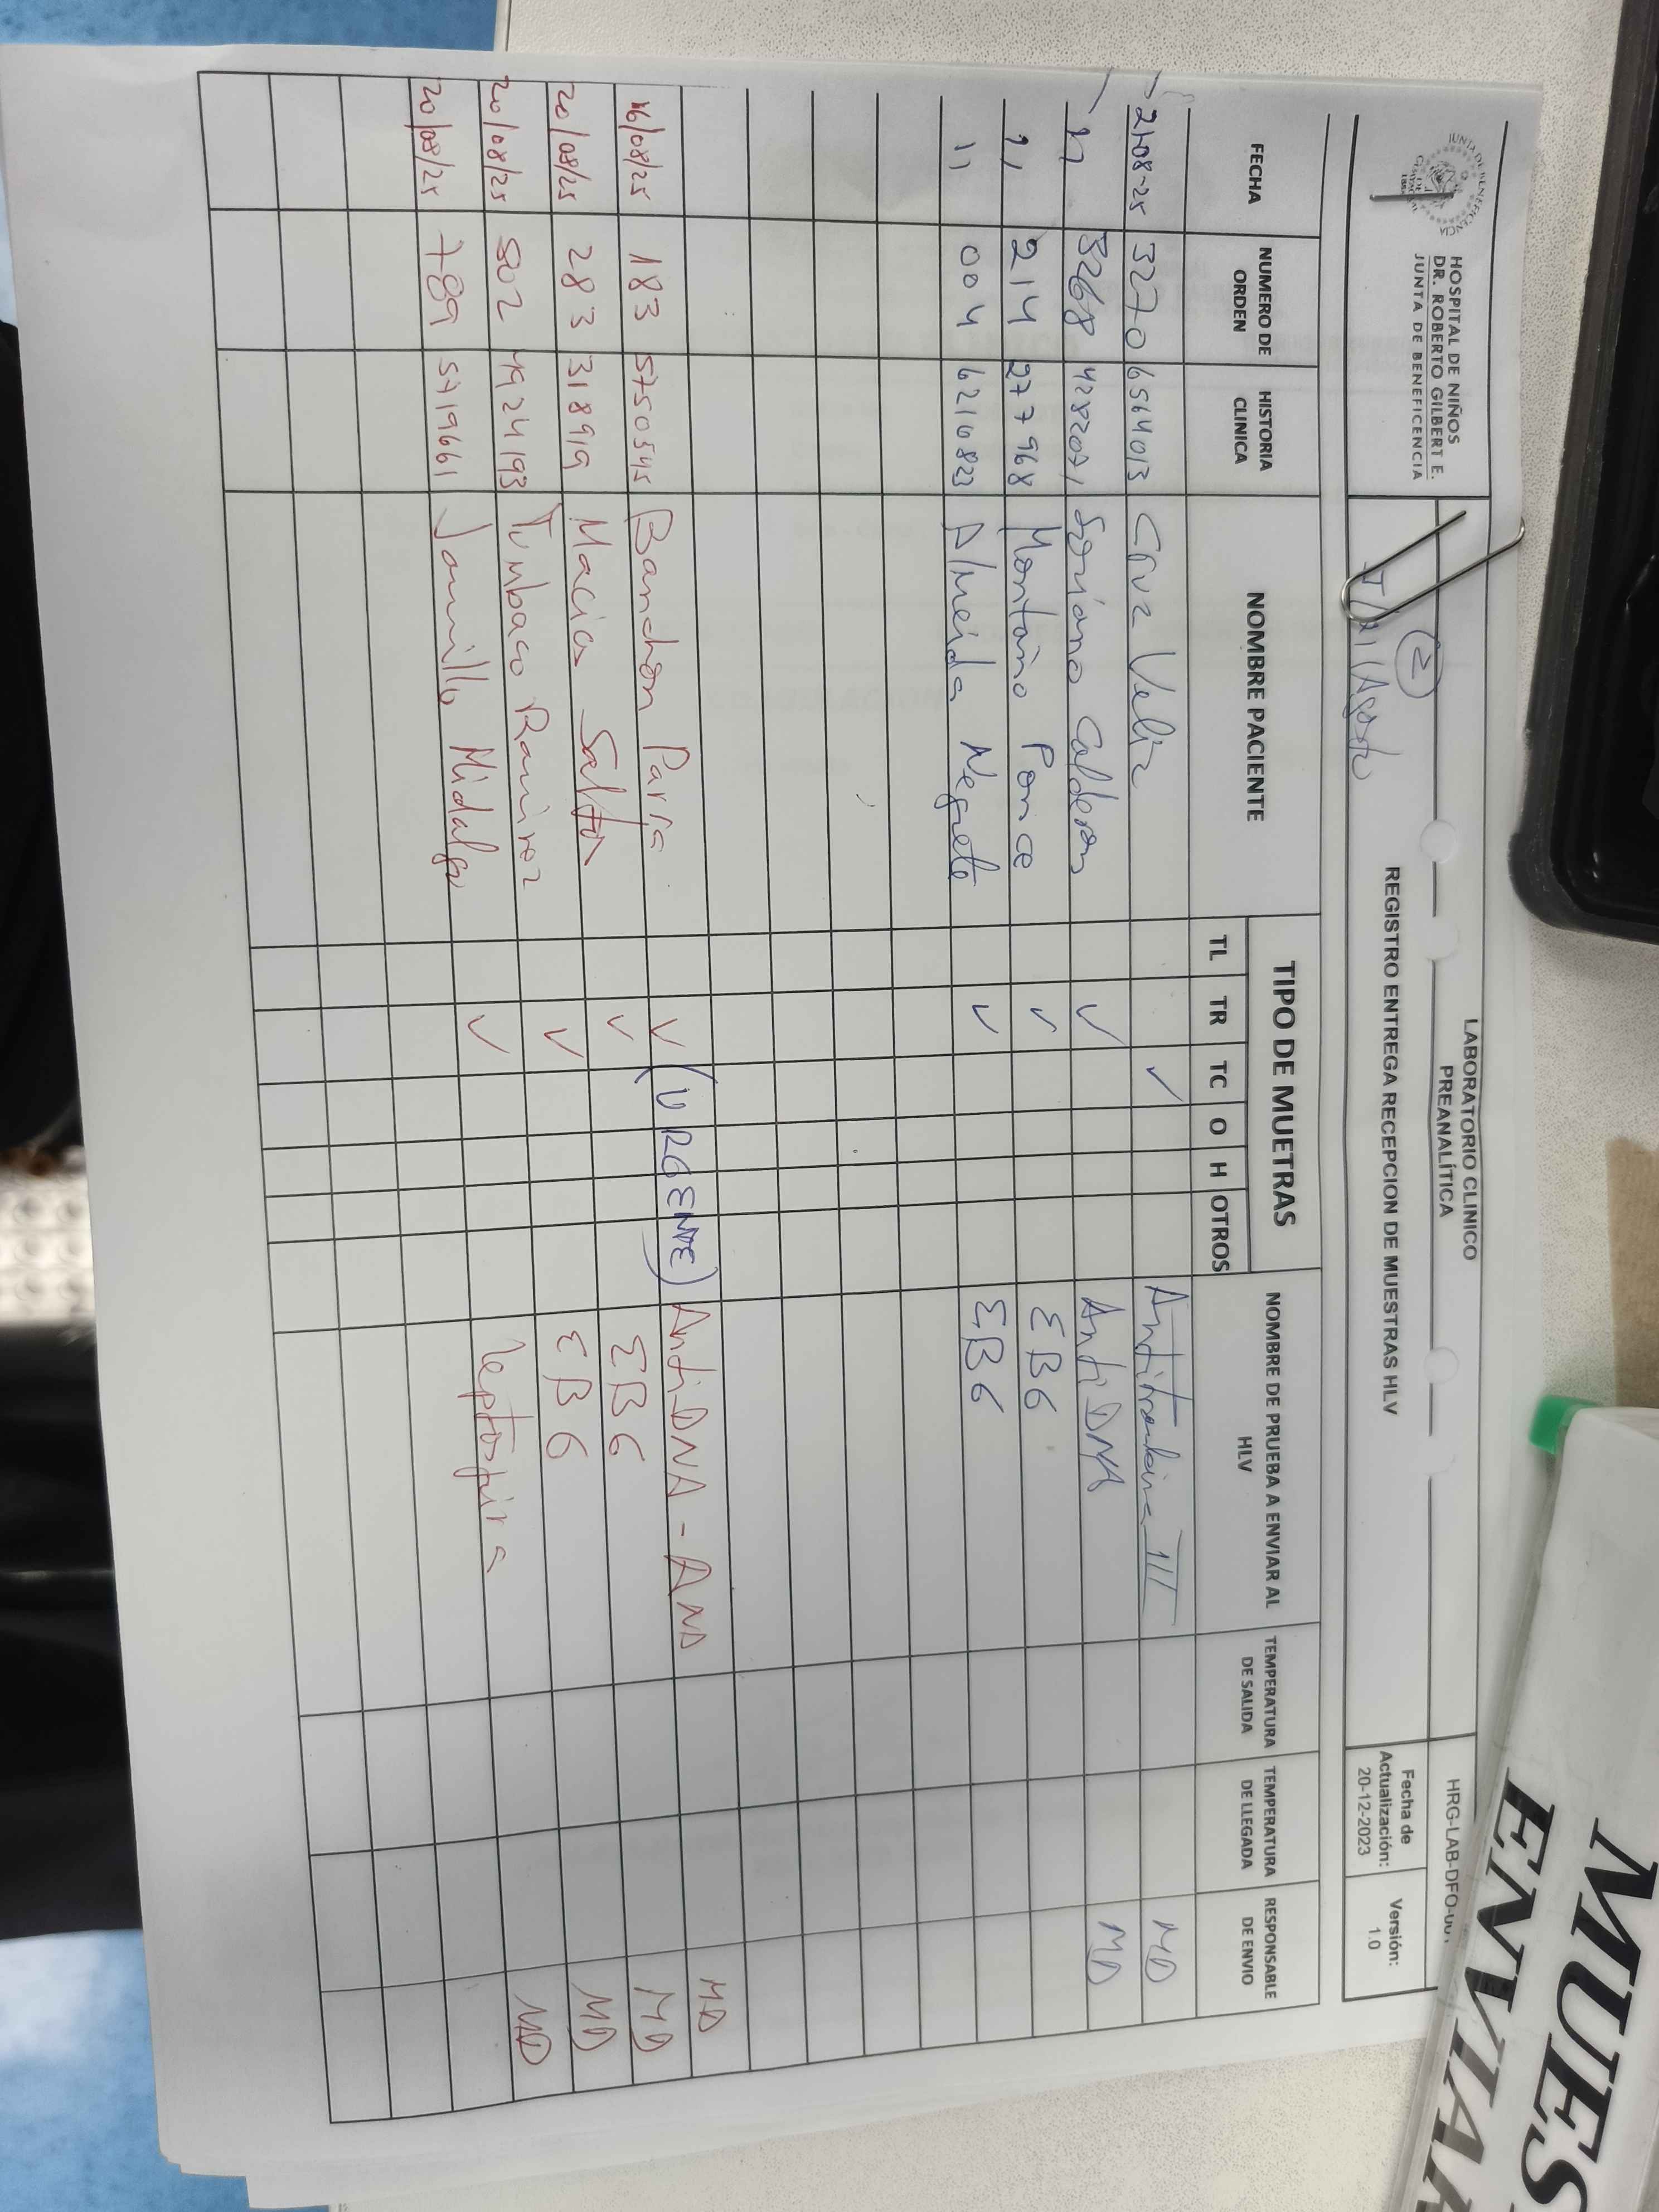 HOSPITAL DE NIÑOS
DR. ROBERTO GILBERT E.
JUNTA DE BENEFICENCIA
LABORATORIO CLINICO
PREANALÍTICA
HRG-LAB-DFO-001
REGISTRO ENTREGA RECEPCION DE MUESTRAS HLV
Fecha de Actualización: 20-12-2023
Versión: 1.0
2
J/21/Agosto
FECHA NUMERO DE ORDEN HISTORIA CLINICA NOMBRE PACIENTE TIPO DE MUETRAS NOMBRE DE PRUEBA A ENVIAR AL HLV TEMPERATURA DE SALIDA TEMPERATURA DE LLEGADA RESPONSABLE DE ENVIO
TL TR TC O H OTROS
21-08-25 3270 6564013 Cruz Veliz ✓ Antitrombina III MD
11 3268 4282071 Soriano Calderon ✓ Anti DNA MD
11 214 277968 Montaño Ponce ✓ EB6
11 004 6210823 Almeida Negrete ✓ EB6
16/08/25 183 5750545 Banchon Parra ✓ (URGENTE) Anti DNA - ANA MD
20/08/25 283 318919 Macias Salton ✓ EB6 MD
20/08/25 502 4924193 Tumbaco Ramirez ✓ EB6 MD
20/08/25 789 5419661 Jaramillo Hidalgo ✓ leptospira MD
MUES
ENVIAR